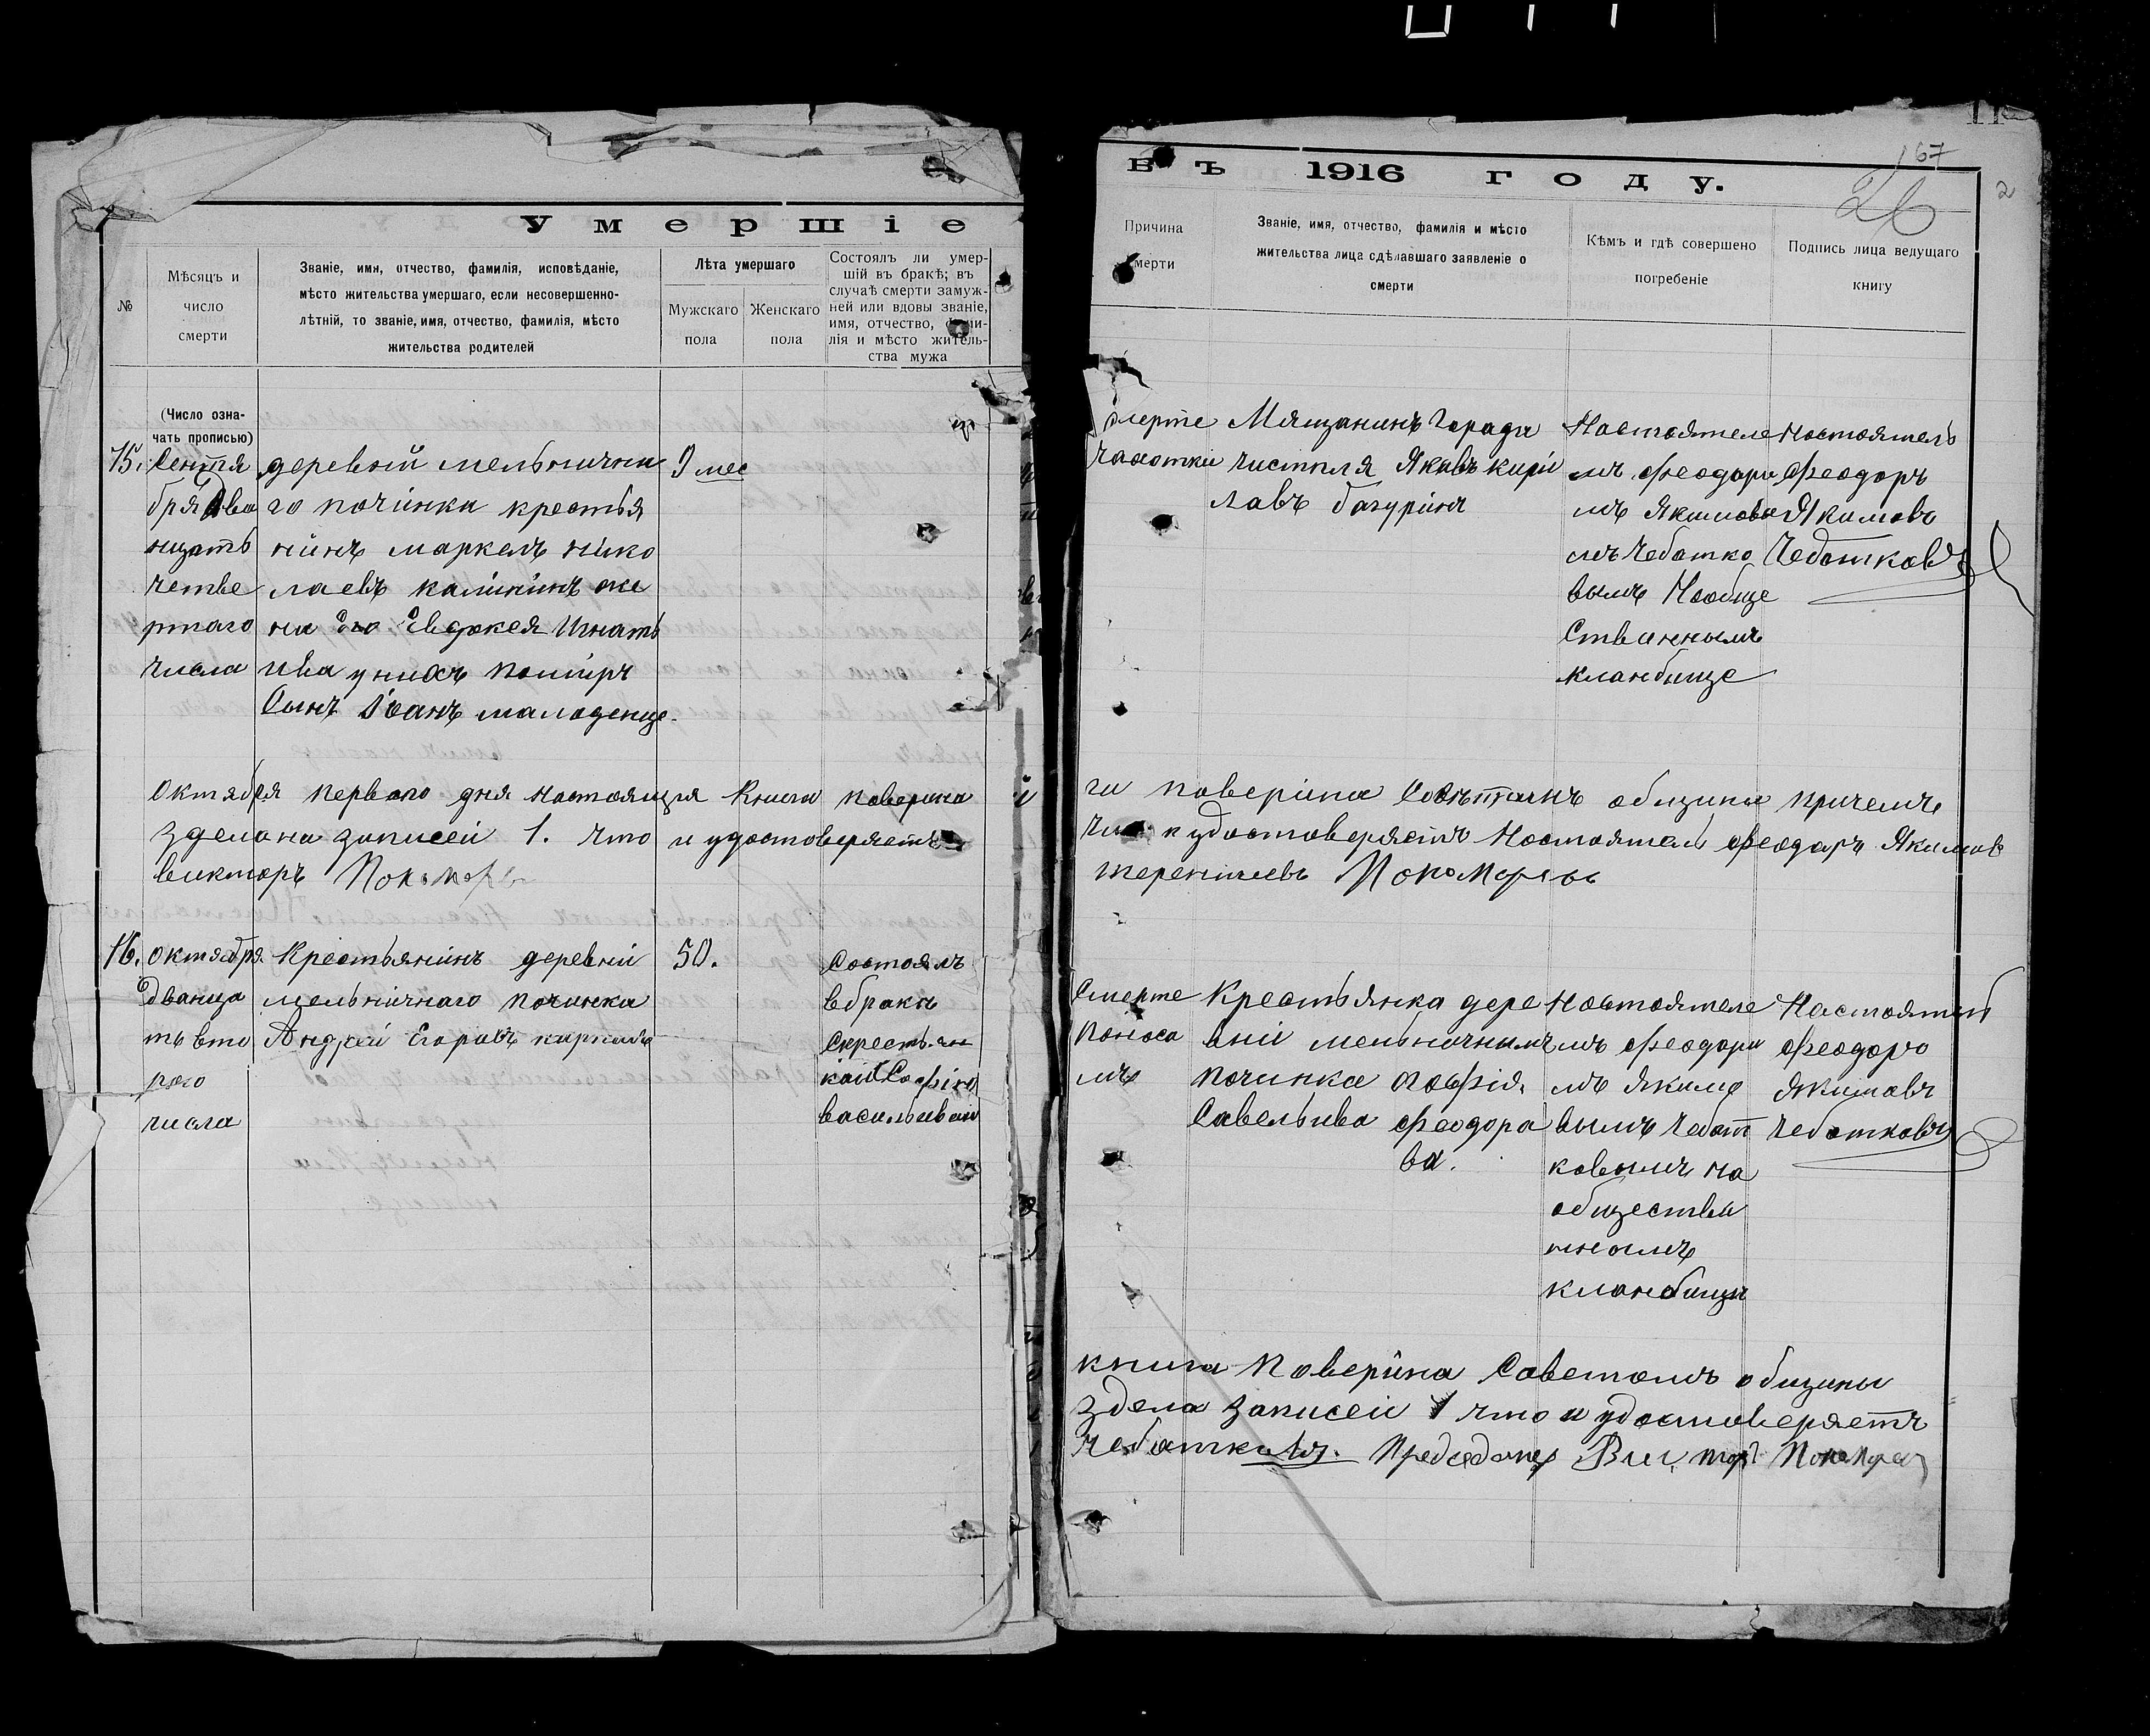 Умершіе
№
Мѣсяцъ и
число
смерти
Званіе, имя, отчество, фамилія, исповѣданіе,
мѣсто жительства умершаго, если несовершенно-
лѣтній, то званіе, имя, отчество, фамилія, мѣсто
жительства родителей
Лѣта умершаго
Мужскаго
пола
Женскаго
пола
Состоялъ ли умер-
шій въ бракѣ; въ
случаѣ смерти замуж-
ней или вдовы званіе,
имя, отчество, фами-
лія и мѣсто житель-
ства мужа
(Число озна-
чать прописью)
15.
Сентя
бря Два
нцать
четве
ртаго
числа
деревній мельнични
го починки крестья
нинъ маркелъ нико
лаевъ калининъ же
на Его Евдокея Игнать
ива унихъ помиръ
Сынъ Іванъ малоденце.
9 мес
Октября первого дня настоящія Книги поверина
зделона записей 1. что и удостоверяетъ
викторъ Пономорь
16.
октября
дванца
тьвто
рого
числа
Крестьянинъ деревній
мельничнаго починка
Андрей Егоравъ
50.
Состоялъ
вбракѣ
Скрестьян
кой Софіей
васильивай
67
26
2
въ 1916 году.
Причина
смерти
Званіе, имя, отчество, фамилія и мѣсто
жительства лица сдѣлавшаго заявленіе о
смерти
Кѣмъ и гдѣ совершено
погребеніе
Подпись лица ведущаго
книгу
смерте
чахотки
Мящанинъ Горада
чистпля Якавъ кирі
лавъ бачурінъ
Настоятеле
мъ феодори
мъ Якимовы
мъ Чебатко
вымъ Нообще
ственнымъ
кланбище
Настоятель
Феодоръ
Якимовъ
Чебатковъ
ги поверіна Совѣтамъ общины причемъ
что и удостоверяетъ Настоятель феодаръ Якимов
терентиевъ Пономорьвь
Смерте
поноса
мъ
Крестьянка дере
вній мельничнымъ
починка Софія
Савельива феодора
ва.
Настоятеле
мъ феодори
мъ Якимо
вымъ Чебат
ковымъ на
обществи
нномъ
кланбищи
Настоятель
феодоро
Якимавъ
Чебатковъ
книга поверина Саветомъ общины
здела записей 1 что и удостоверяетъ
чебатковъ. Председатеь Виктор Пономорев